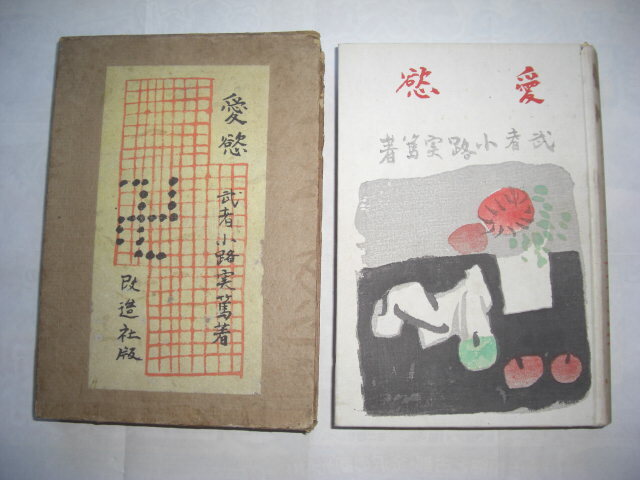 愛慾
武者小路実篤著
改造社版
愛慾
武者小路実篤著